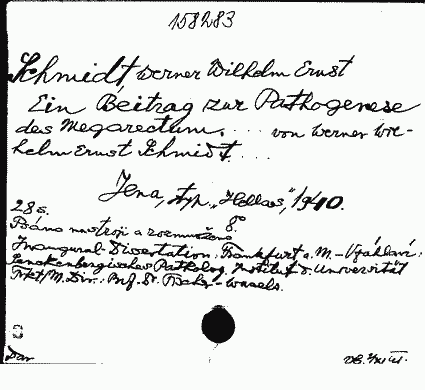 158283
Schmidt, Werner Wilhelm Ernst
Ein Beitrag zur Pathogenese
des Megarectum. ... von Werner Wil-
helm Ernst Schmidt. ...
Jena, typ. "Hellas", 1940.
28 s. 8°
Psáno na stroji a rozmnoženo
Inaugural-Dissertation: Frankfurt a. M. - Vydáno:
Senckenbergisches Patholog. Institut d. Universität
Frkf/M. Dir.: Prof. Dr.
Dar